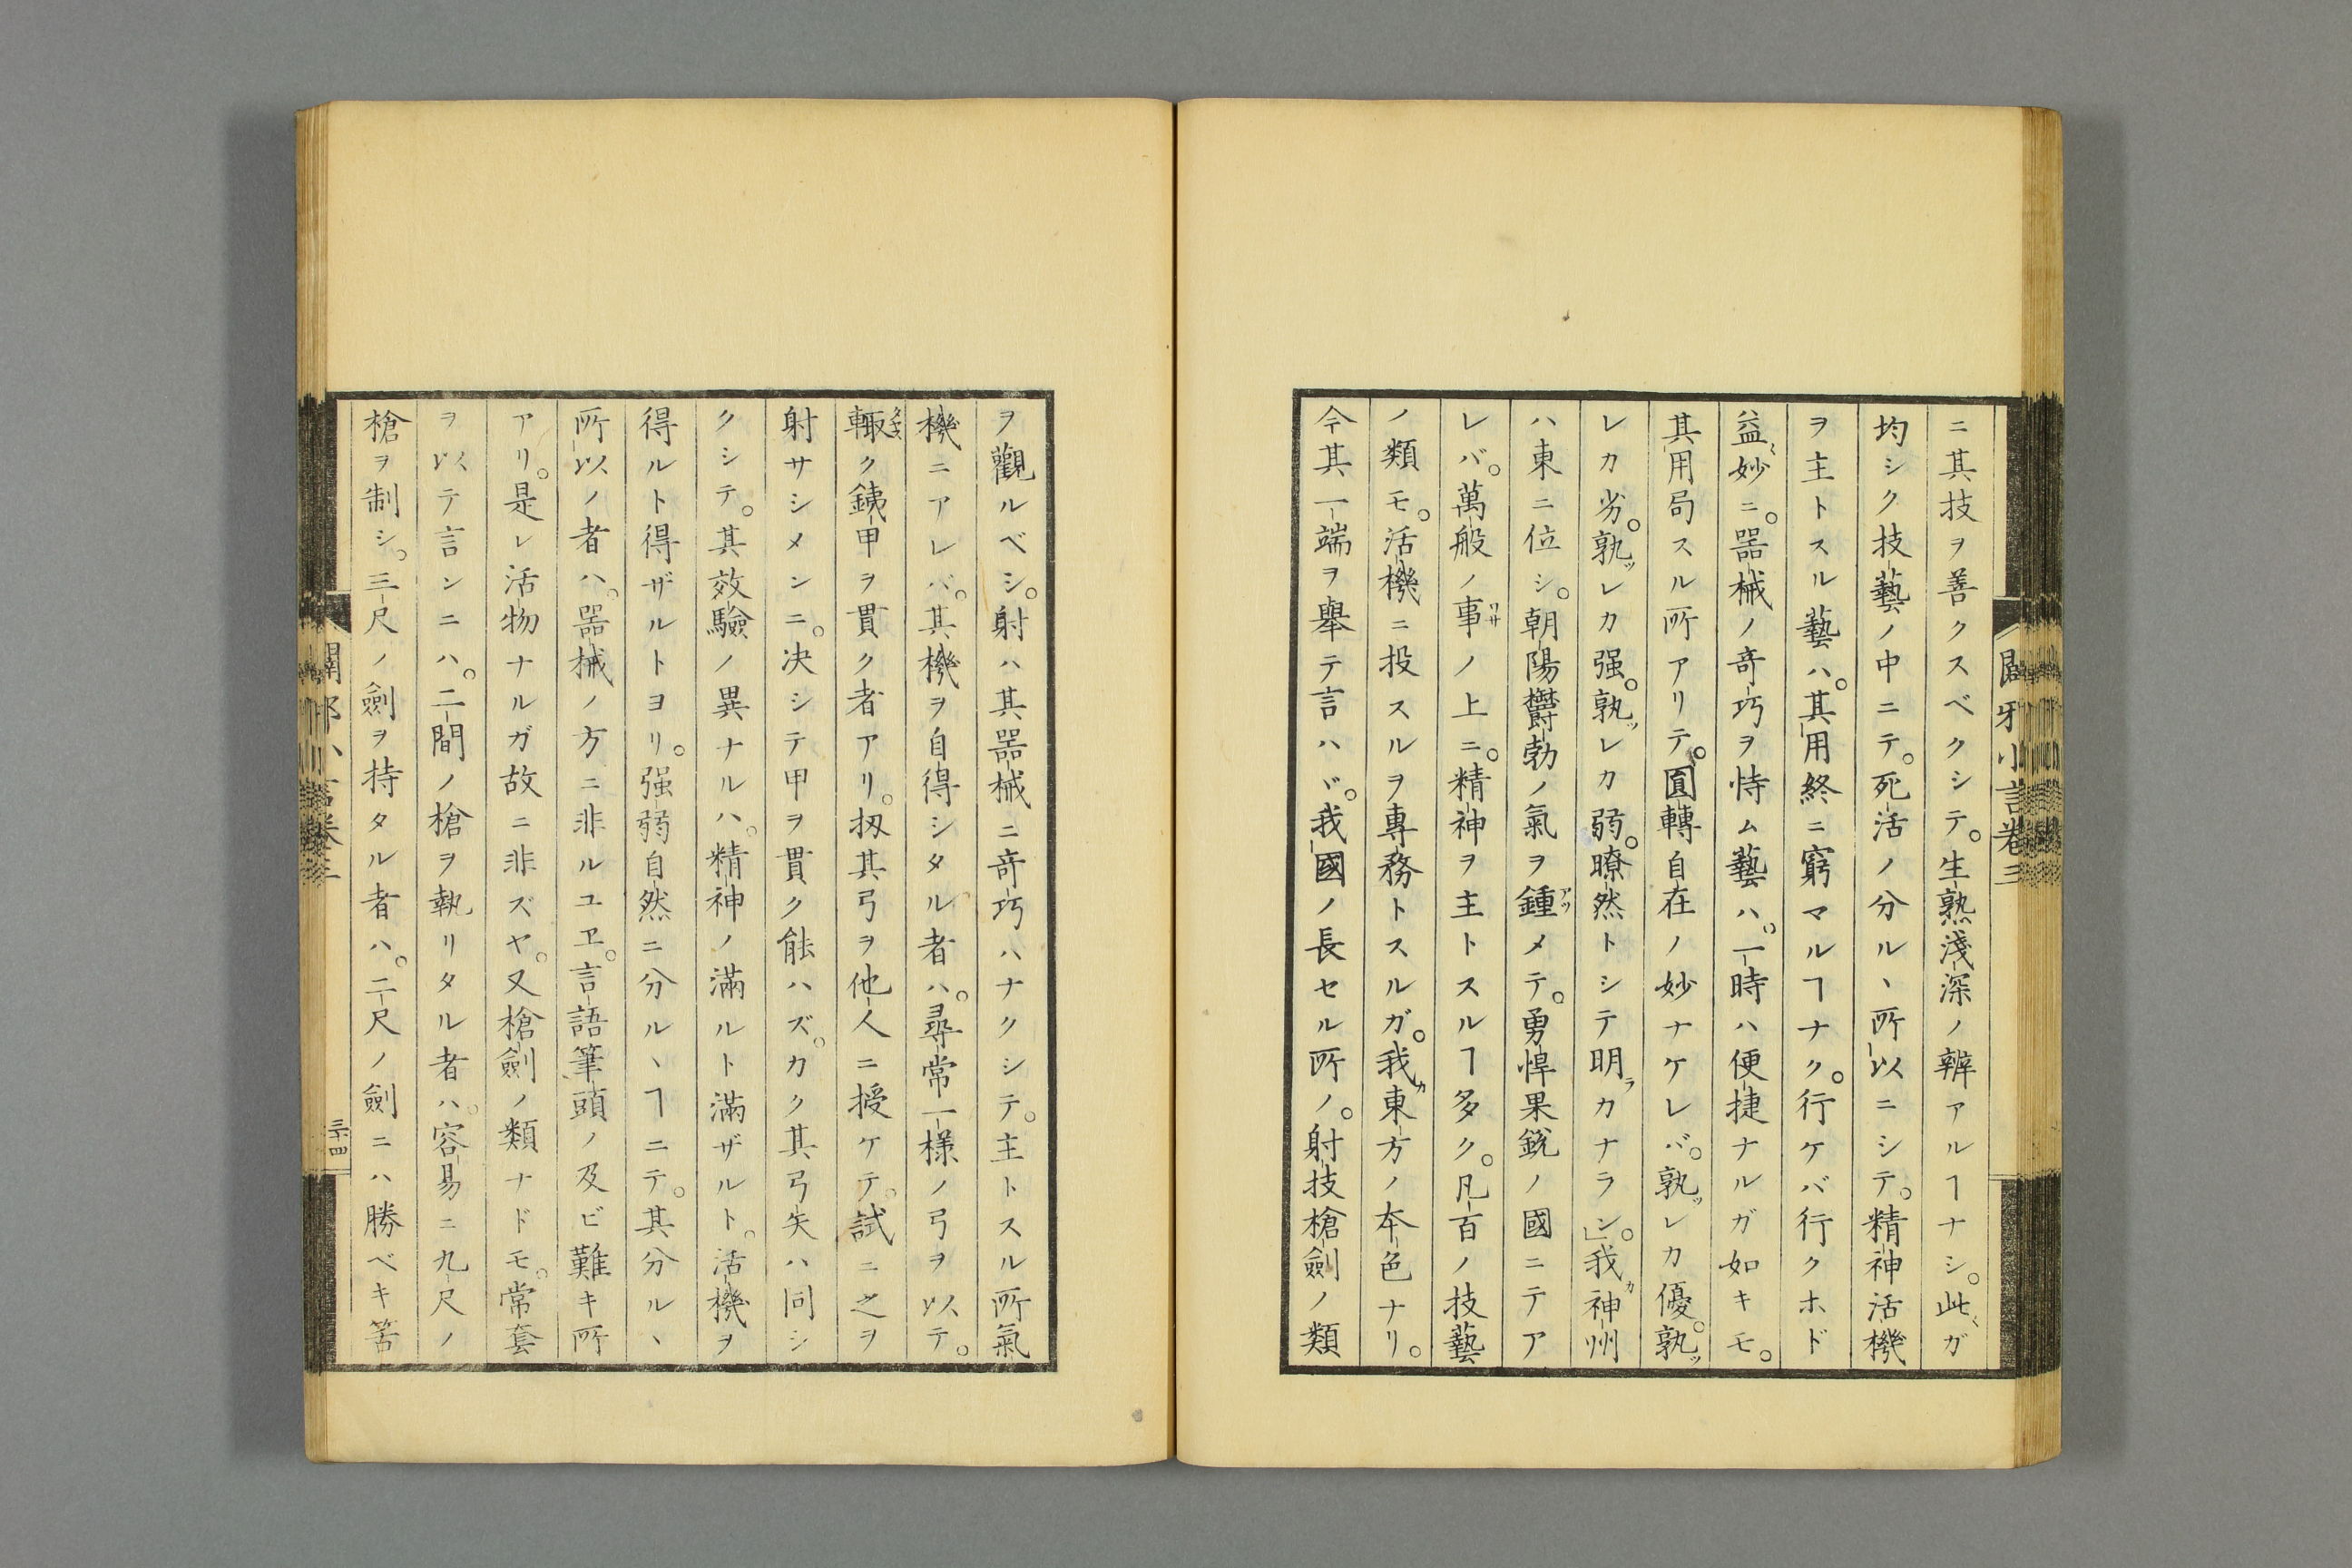 ニ其技ヲ善クスベクシテ。生熟淺深ノ辨アルヿナシ。此ガ
均シク技藝ノ中ニテ。死活ノ分ル丶所以ニシテ。精神活機
ヲ主トスル藝ハ。其用終ニ窮マルヿナク。行ケバ行クホド
益〻妙ニ。器械ノ竒巧ヲ恃ム藝ハ。一時ハ便捷ナルガ如キモ。
其用局スル所アリテ。圓轉自在ノ妙ナケレバ。孰ッレカ優。孰ッ
レカ劣。孰ッレカ强。孰ッレカ弱。瞭然トシテ明ラカナラン。」我カ神州
ハ東ニ位シ。朝陽欝勃ノ氣ヲ鍾アツメテ。勇悍果銳ノ國ニテア
レバ。萬般ノ事ワサノ上ニ。精神ヲ主トスルヿ多ク。凡百ノ技藝
ノ類モ。活機ニ投スルヲ專務トスルガ。我カ東方ノ夲色ナリ。
今其一端ヲ舉テ言ハヾ。我國ノ長セル所ノ。射技槍劍ノ類
ヲ觀ルベシ。射ハ其器械ニ竒巧ハナクシテ。主トスル所氣
機ニアレバ。其機ヲ自得シタル者ハ。尋常一樣ノ弓ヲ以テ。
輙ク銕甲ヲ貫ク者アリ。扨其弓ヲ他人ニ授ケテ。試ニ之ヲ
射サシメンニ。决シテ甲ヲ貫ク能ハズ。カク其弓矢ハ同シ
クシテ。其效驗ノ異ナルハ。精神ノ滿ルト滿ザルト。活機ヲ
得ルト得ザルトヨリ。强弱自然ニ分ル丶ヿニテ。其分ル丶
所以ノ者ハ。器械ノ方ニ非ルユヱ。言語筆頭ノ及ビ難キ所
アリ。是レ活物ナルガ故ニ非ズヤ。又槍劍ノ類ナドモ。常套
ヲ以テ言ンニハ。二間ノ槍ヲ執リタル者ハ。容易ニ九尺ノ
槍ヲ制シ。三尺ノ劍ヲ持タル者ハ。二尺ノ劍ニハ勝ベキ筈
三十四